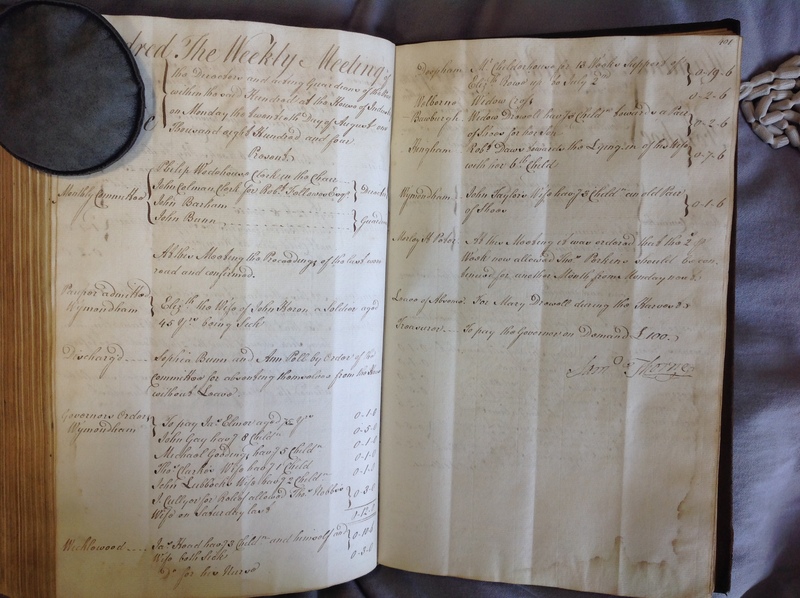 dred The Weekly Meeting of
the Directors and acting Guardians of the Poor
within the said Hundred at the House of Indust
on Monday the twentieth Day of August one
Thousand eight Hundred and four
Present
Philip Wodehouse Clerk in the Chair
Monthly Committee
John Colman Clerk for Robt. Fellowes Esqr.
Director
John Barham
John Bunn
Guardian
At this Meeting the Proceedings of the last were
read and confirmed.
Pauper admitted
Wymondham
Elizth. the Wife of John Heron a Soldier aged
45 Yrs. being Sick
Discharg'd
Sophia Bunn and Ann Poll by Order of the
Committee for absenting themselves from the House
without Leave
Governors Order
Wymondham
To pay Jas. Elmer aged Yrs
0-1-0
John Gay hav'g 8 Childn.
0-5-0
Michael Gooding hav'g 5 Childn.
0-1-0
Thos. Clarke's Wife hav'g 1 Child
0-1-0
John Lubbock's Wife hav'g 2 Childn.
0-1-0
for Relief allowed Thos.
0-3-0
Wife on Saturday last
Wicklewood
Jas. Head hav'g 3 Childn. and himself and
Wife both Sick
Do. for his Nurse
401
Mr. for 13 Weeks Support of
Elizth. to July 2
0-19-6
Welborne
Widow
0-2-6
Bawburgh
Widow Drewell hav'g 5 Childn. towards a Pair
of for her
0-2-6
Hingham
Robt. Daws towards the Lying in of his Wife
with her 6th. Child
0-7-6
Wymondham
John Taylors Wife hav'g 3 Childn. an old Pair
of Shoes
0-1-6
Morley St. Peter
At this Meeting it was ordered that the 2s. P
Week now allowed Thos. Parker should be con
tinued for another Month from Monday next.
Leave of Absence
For Mary Drewell during the Harvest
Treasurer
To pay the Governor on Demand £100.